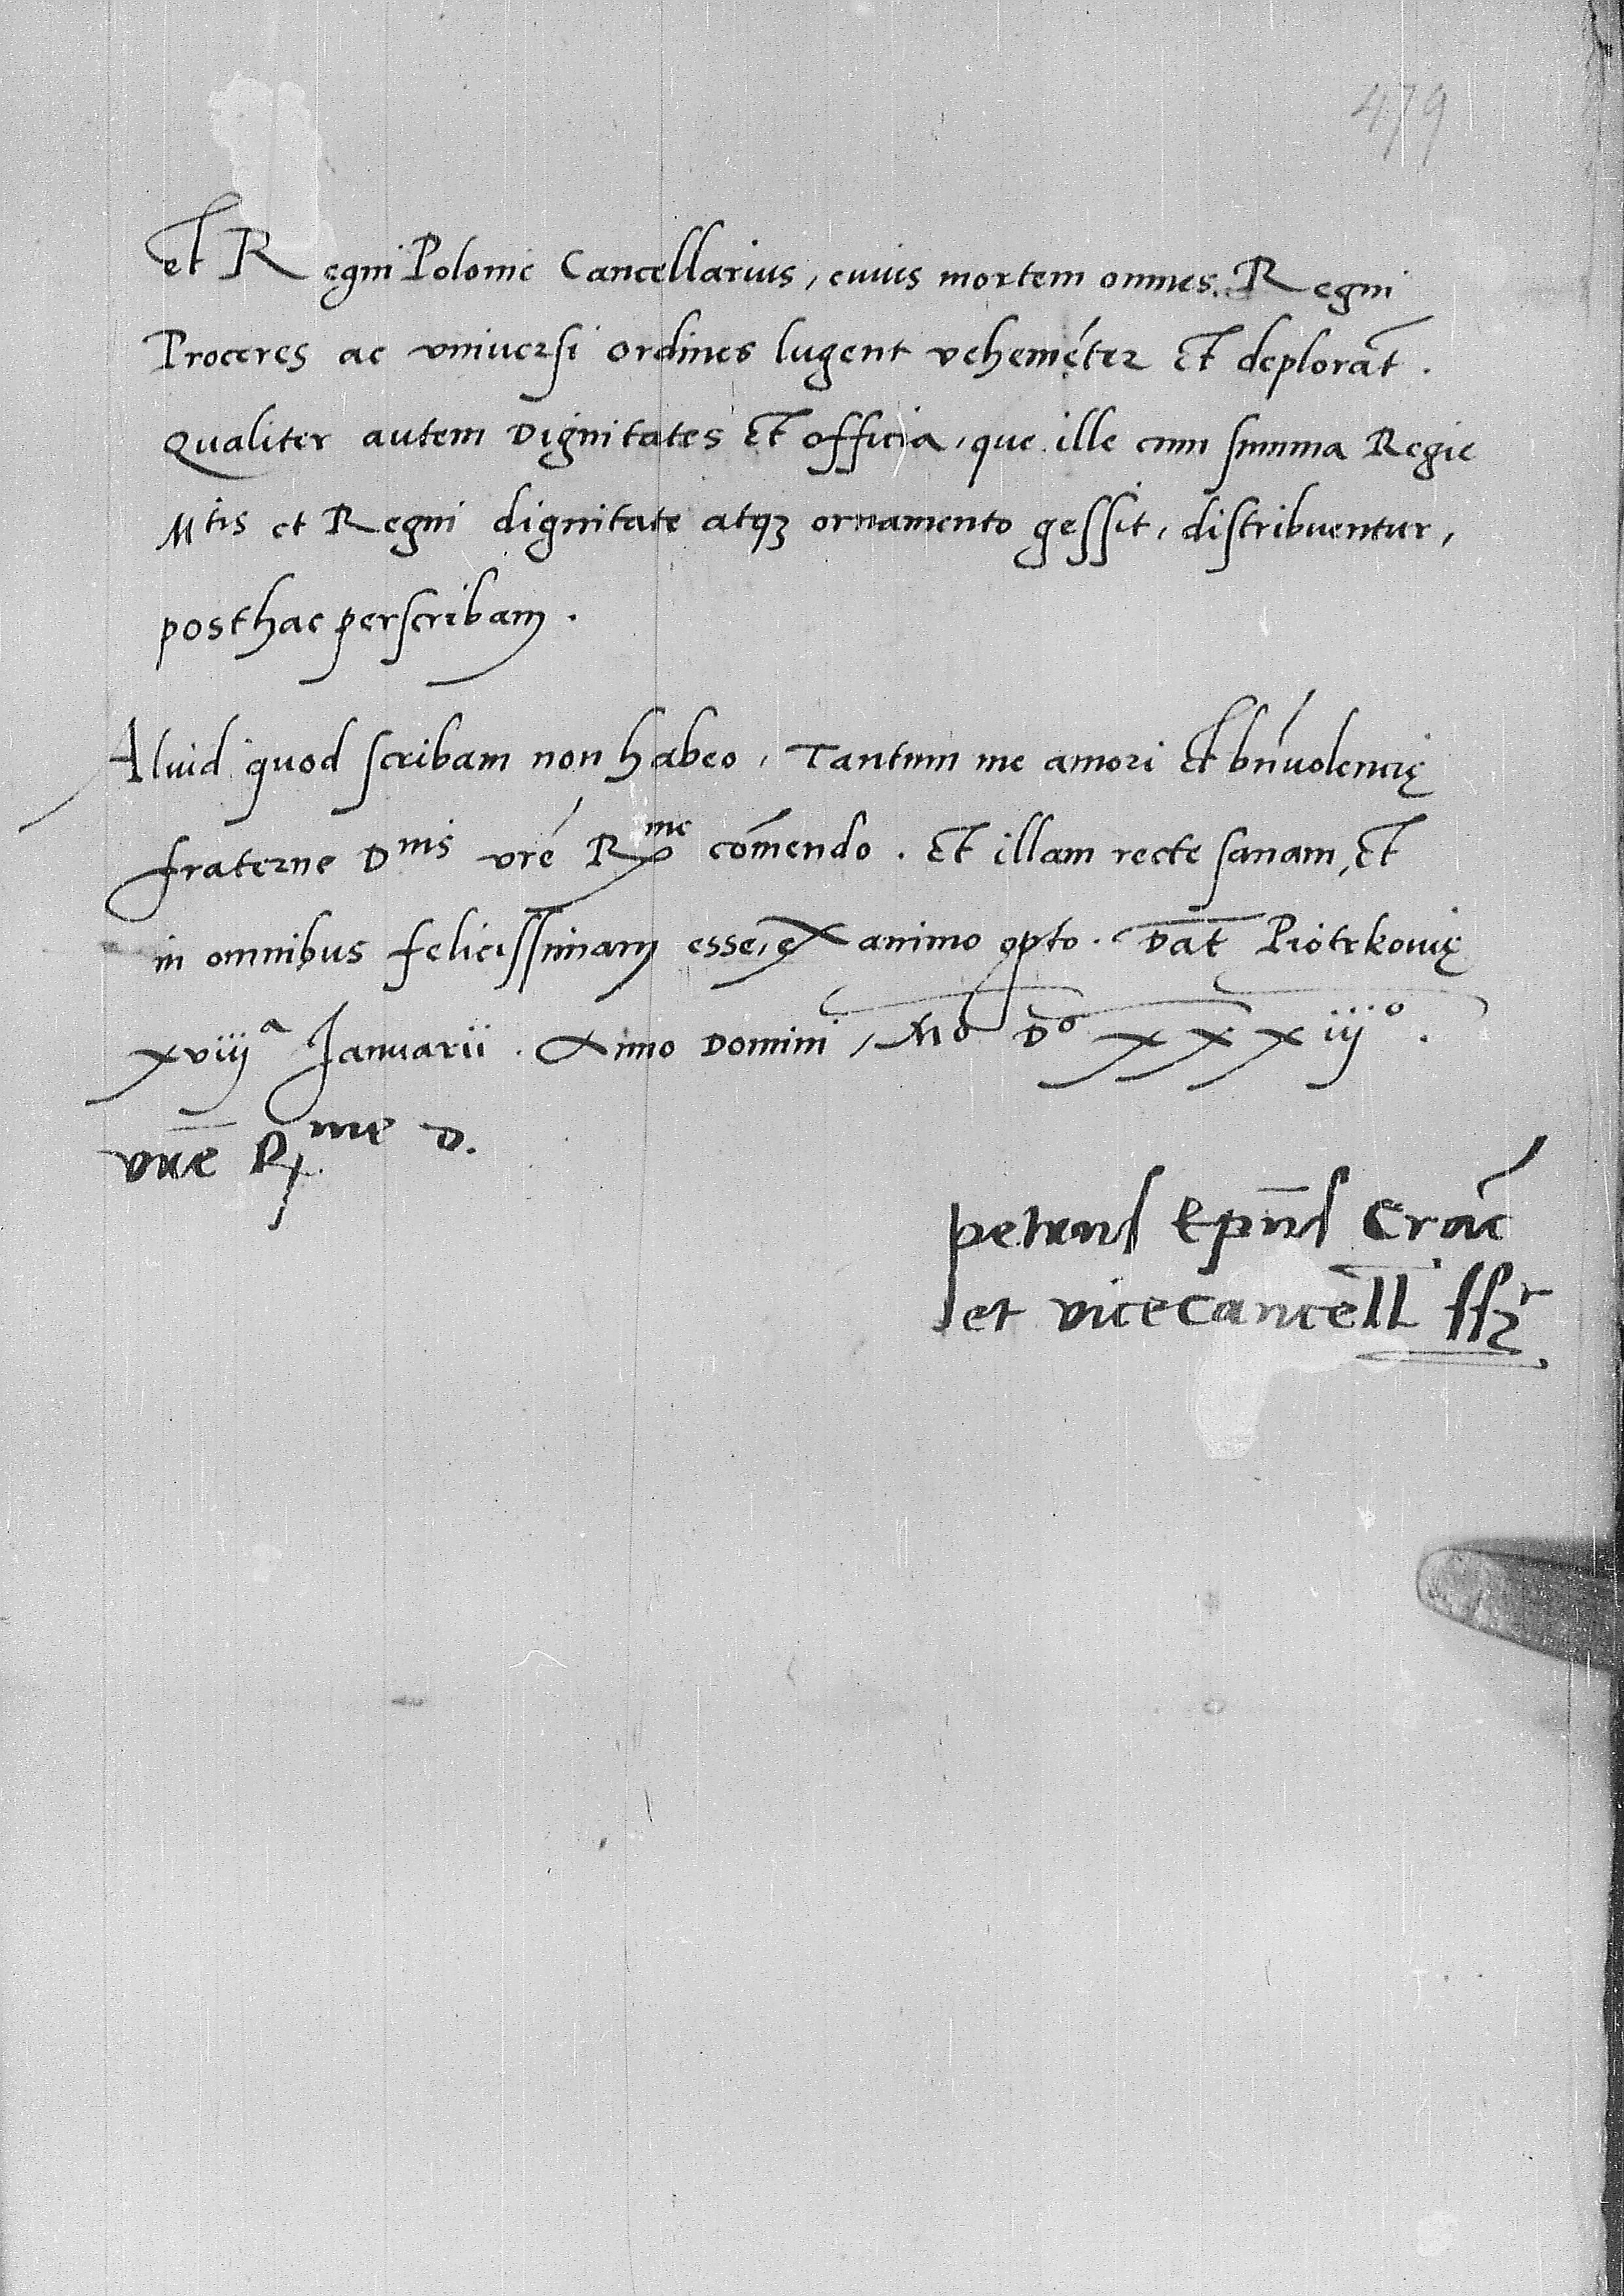 479
et Regni Polonie Cancellarius, cuius mortem omnes Regni
Proceres ac vniuersi ordines lugent vehemēter Et deplorāt.
Qualiter autem Dignitates Et officia, que ille cum summa Regie
Mtis et Regni dignitate atqꝫ ornamento gessit, distribuentur,
posthac perscribam.
Aliud quod scribam non habeo, Tantum me amori Et bn̄uolencię
fraterne Dnis vrē Rme cōmendo. Et illam recte sanam, Et
in omnibus felicissimam esse, ex animo opto. Dāt Piotrkouię
xviijª Januarii. Anno Domini, Mº Dº xxxiijº.
vrē Rme D.
petrus Ep̄us Crāc
et vicecancell̄ ssr